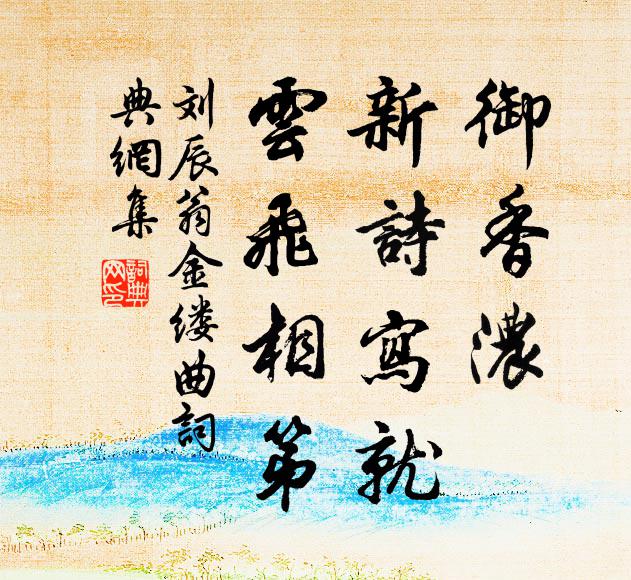 御香濃
新詩寫就
雲飛相第
刘辰翁金缕曲詞
典網集
詞典
网印